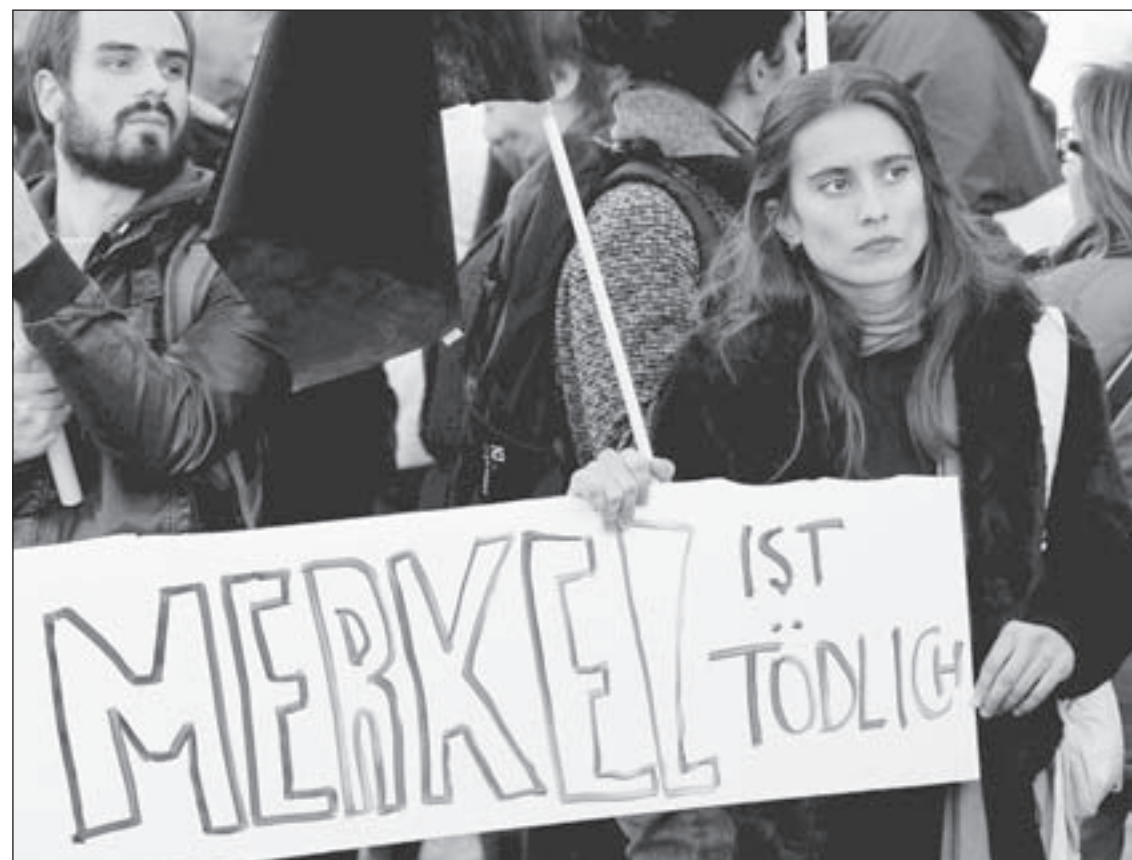 MERKEL
IST
TÖDLICH